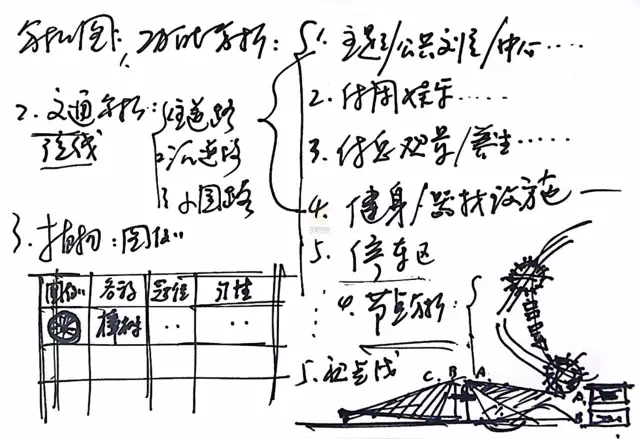 分析图：1、功能分析：
1. 主题/公共文化/中心……
2. 休闲娱乐……
3. 休息观景/养生……
4. 健身/器材设施——
5. 停车区
2. 交通分析：
流线
1. 主道路
2. 次道路
3 小园路
3. 植物：图例
图例 名称 冠径 习性
樟树 ‥ ‥
4. 节点分析：
5. 视点线
C. B A
A
B